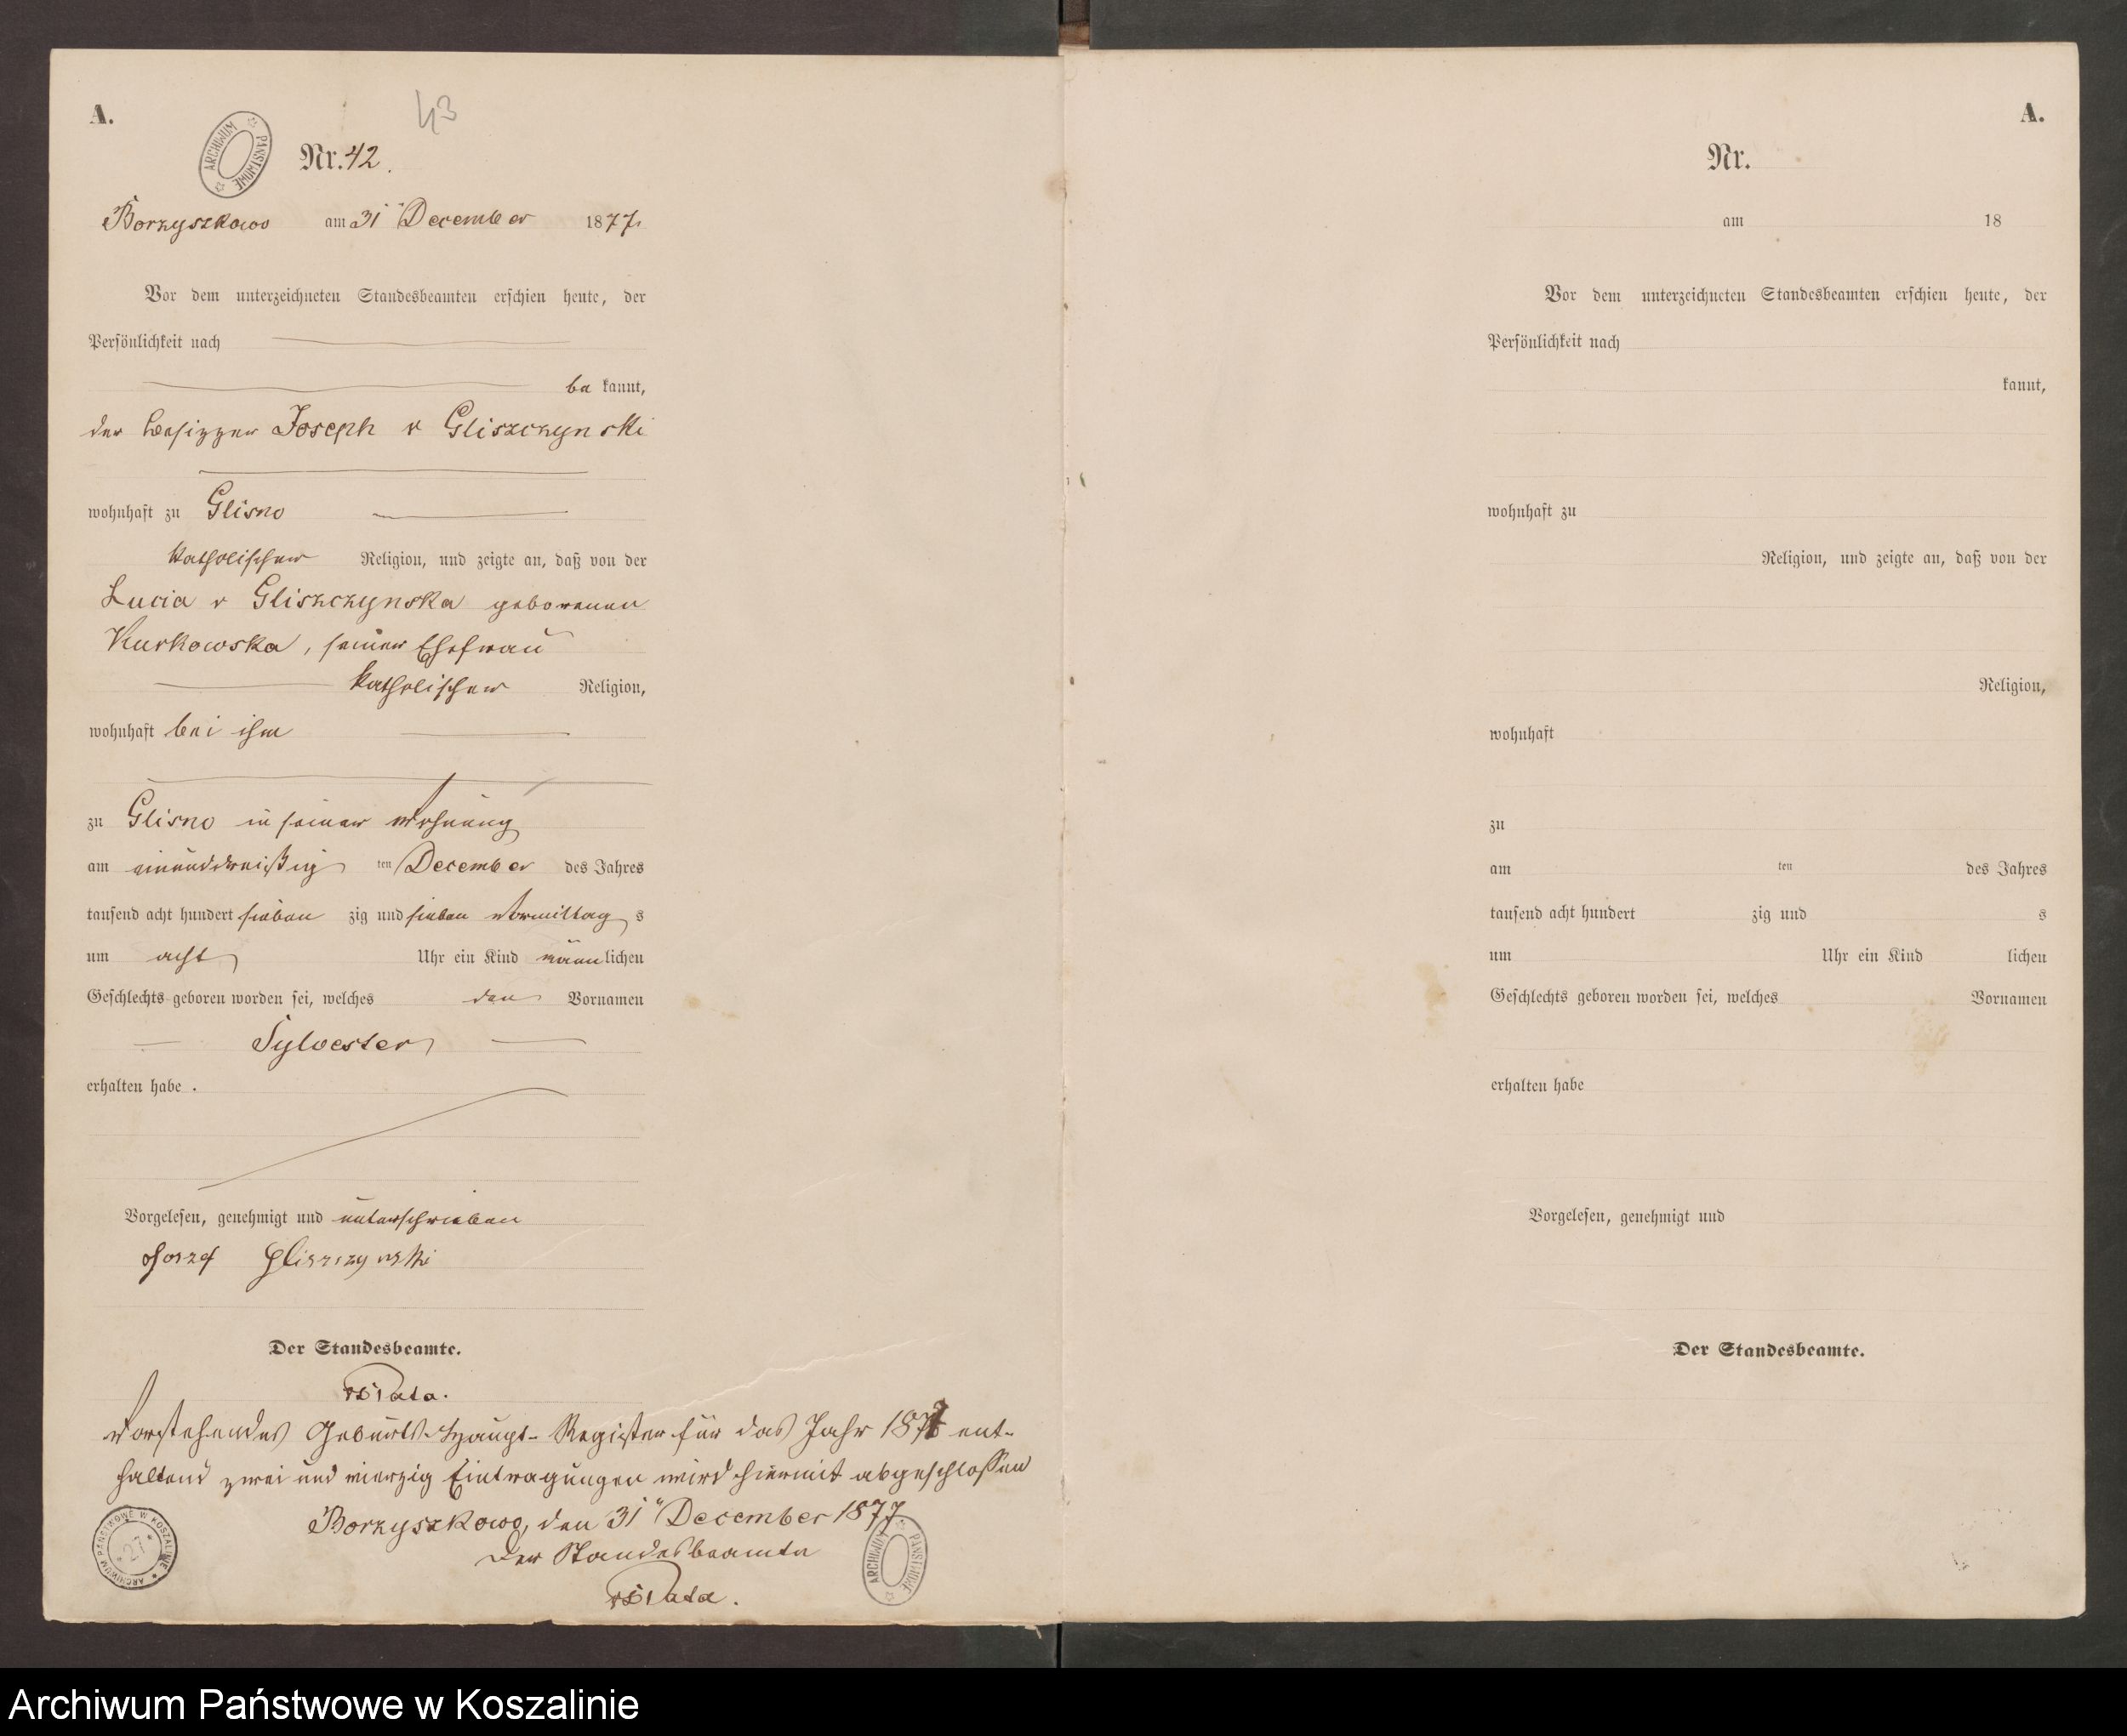 A.
43
ARCHIWUM PAŃSTWOWE
Nr. 42.
Borzyszkowo am 31" December 1877.
Vor dem unterzeichneten Standesbeamten erschien heute, der
Persönlichkeit nach
be kannt,
der Besizzer Joseph v Gliszczynski
wohnhaft zu Glisno
katholischer Religion, und zeigte an, daß von der
Lucia v Gliszczynska geborenen
Kurkowska, seiner Ehefrau
katholischer Religion,
wohnhaft bei ihm
zu Glisno in seiner Wohnung
am einunddreißig ten December des Jahres
tausend acht hundert sieben zig und sieben Vormittag s
um acht Uhr ein Kind männ lichen
Geschlechts geboren worden sei, welches den Vornamen
Sylvester
erhalten habe .
Vorgelesen, genehmigt und unterschrieben
Joszef Gliszczynski
Der Standesbeamte.
Vorstehendes Geburts-Haupt-Register für das Jahr 1877 ent-
haltend zwei und vierzig Eintragungen wird hiermit abgeschlossen
Borzyszkowo, den 31" December 1877
Der Standesbeamte
ARCHIWUM PAŃSTWOWE W KOSZALINIE
27
ARCHIWUM PAŃSTWOWE
A.
Nr.
am 18
Vor dem unterzeichneten Standesbeamten erschien heute, der
Persönlichkeit nach
kannt,
wohnhaft zu
Religion, und zeigte an, daß von der
Religion,
wohnhaft
zu
am ten des Jahres
tausend acht hundert zig und s
um Uhr ein Kind lichen
Geschlechts geboren worden sei, welches Vornamen
erhalten habe
Vorgelesen, genehmigt und
Der Standesbeamte.
Archiwum Państwowe w Koszalinie